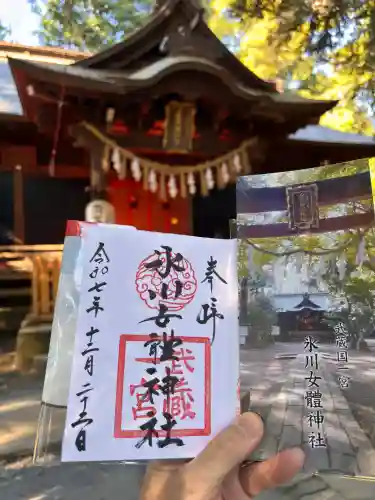 奉拝
氷川女體神社
武蔵
一宮
令和七年十二月二十二日
武蔵国一宮
氷川女體神社